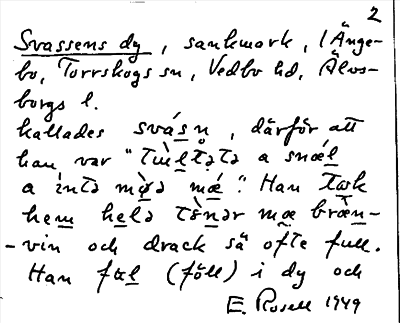 2
Svassens dy, sankmark, i Änge-
bo, Torrskogs sn, Vedbo hd, Älvs-
borgs l.
kallades svásn, därför att
han var "
a íntə mə̀ə mǽ". Han tæk
hem helə tönər mæ bræ̀n-
-vin och drack så ofte full.
Han fæl (föll) i dy och
E. Rosell 1949